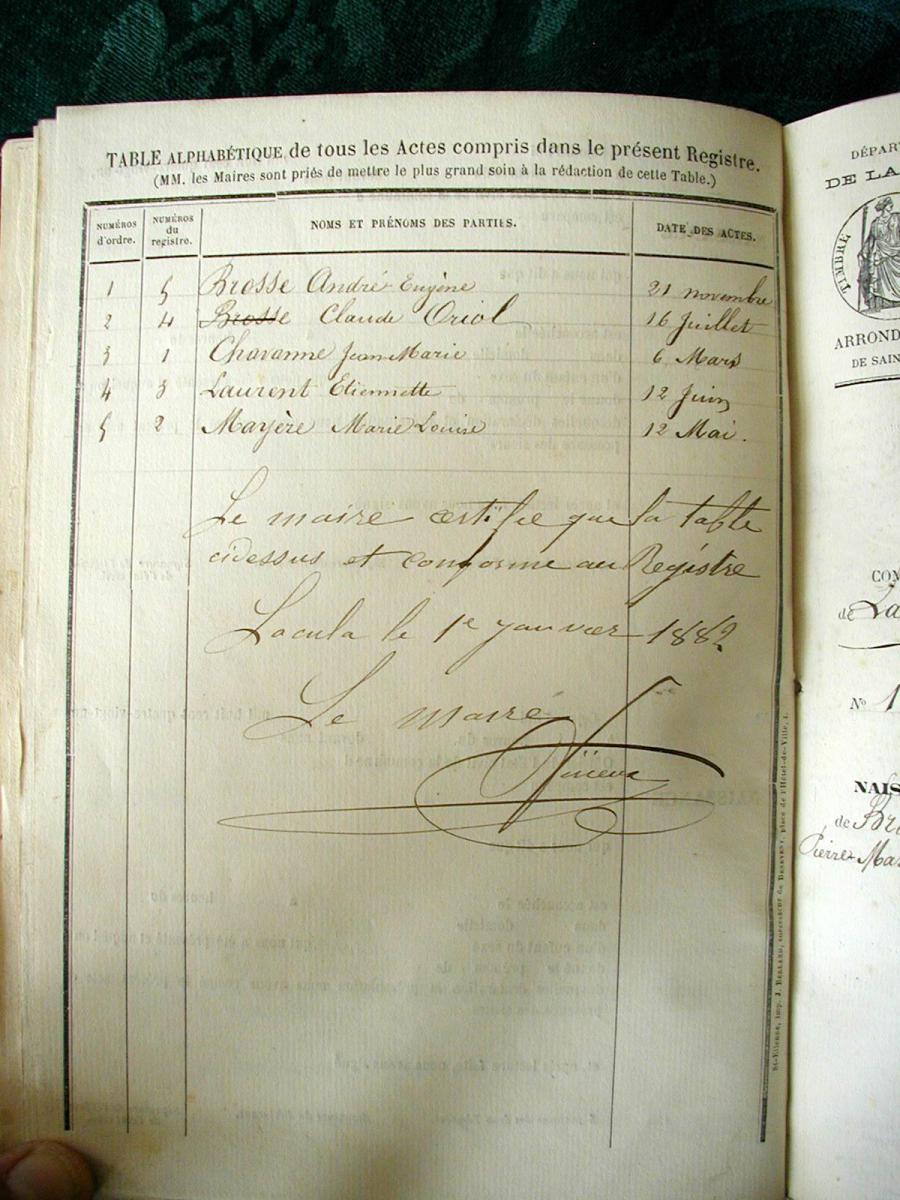 TABLE ALPHABÉTIQUE de tous les Actes compris dans le présent Registre.
(MM. les Maires sont priés de mettre le plus grand soin à la rédaction de cette Table.)
NUMÉROS d'ordre. NUMÉROS du registre. NOMS ET PRÉNOMS DES PARTIES. DATE DES ACTES.
1 5 Brosse André Eugène 21 novembre
2 4 Brosse Claude Oriol 16 Juillet
3 1 Chavanne Jean Marie 6 Mars
4 3 Laurent Etiennette 12 Juin
5 2 Mayère Marie Louise 12 Mai.
Le maire certifie que la table
cidessus et conforme au Registre
Lacula le 1e janvier 1882
Le maire
St-Etienne, imp. J. BESSAND, place de l'Hôtel-de-Ville, 4.
DÉPAR
DE LA
TIMBRE
ARROND
DE SAIN
COM
de La
No 1
NAIS
de Br
Pierre Mar